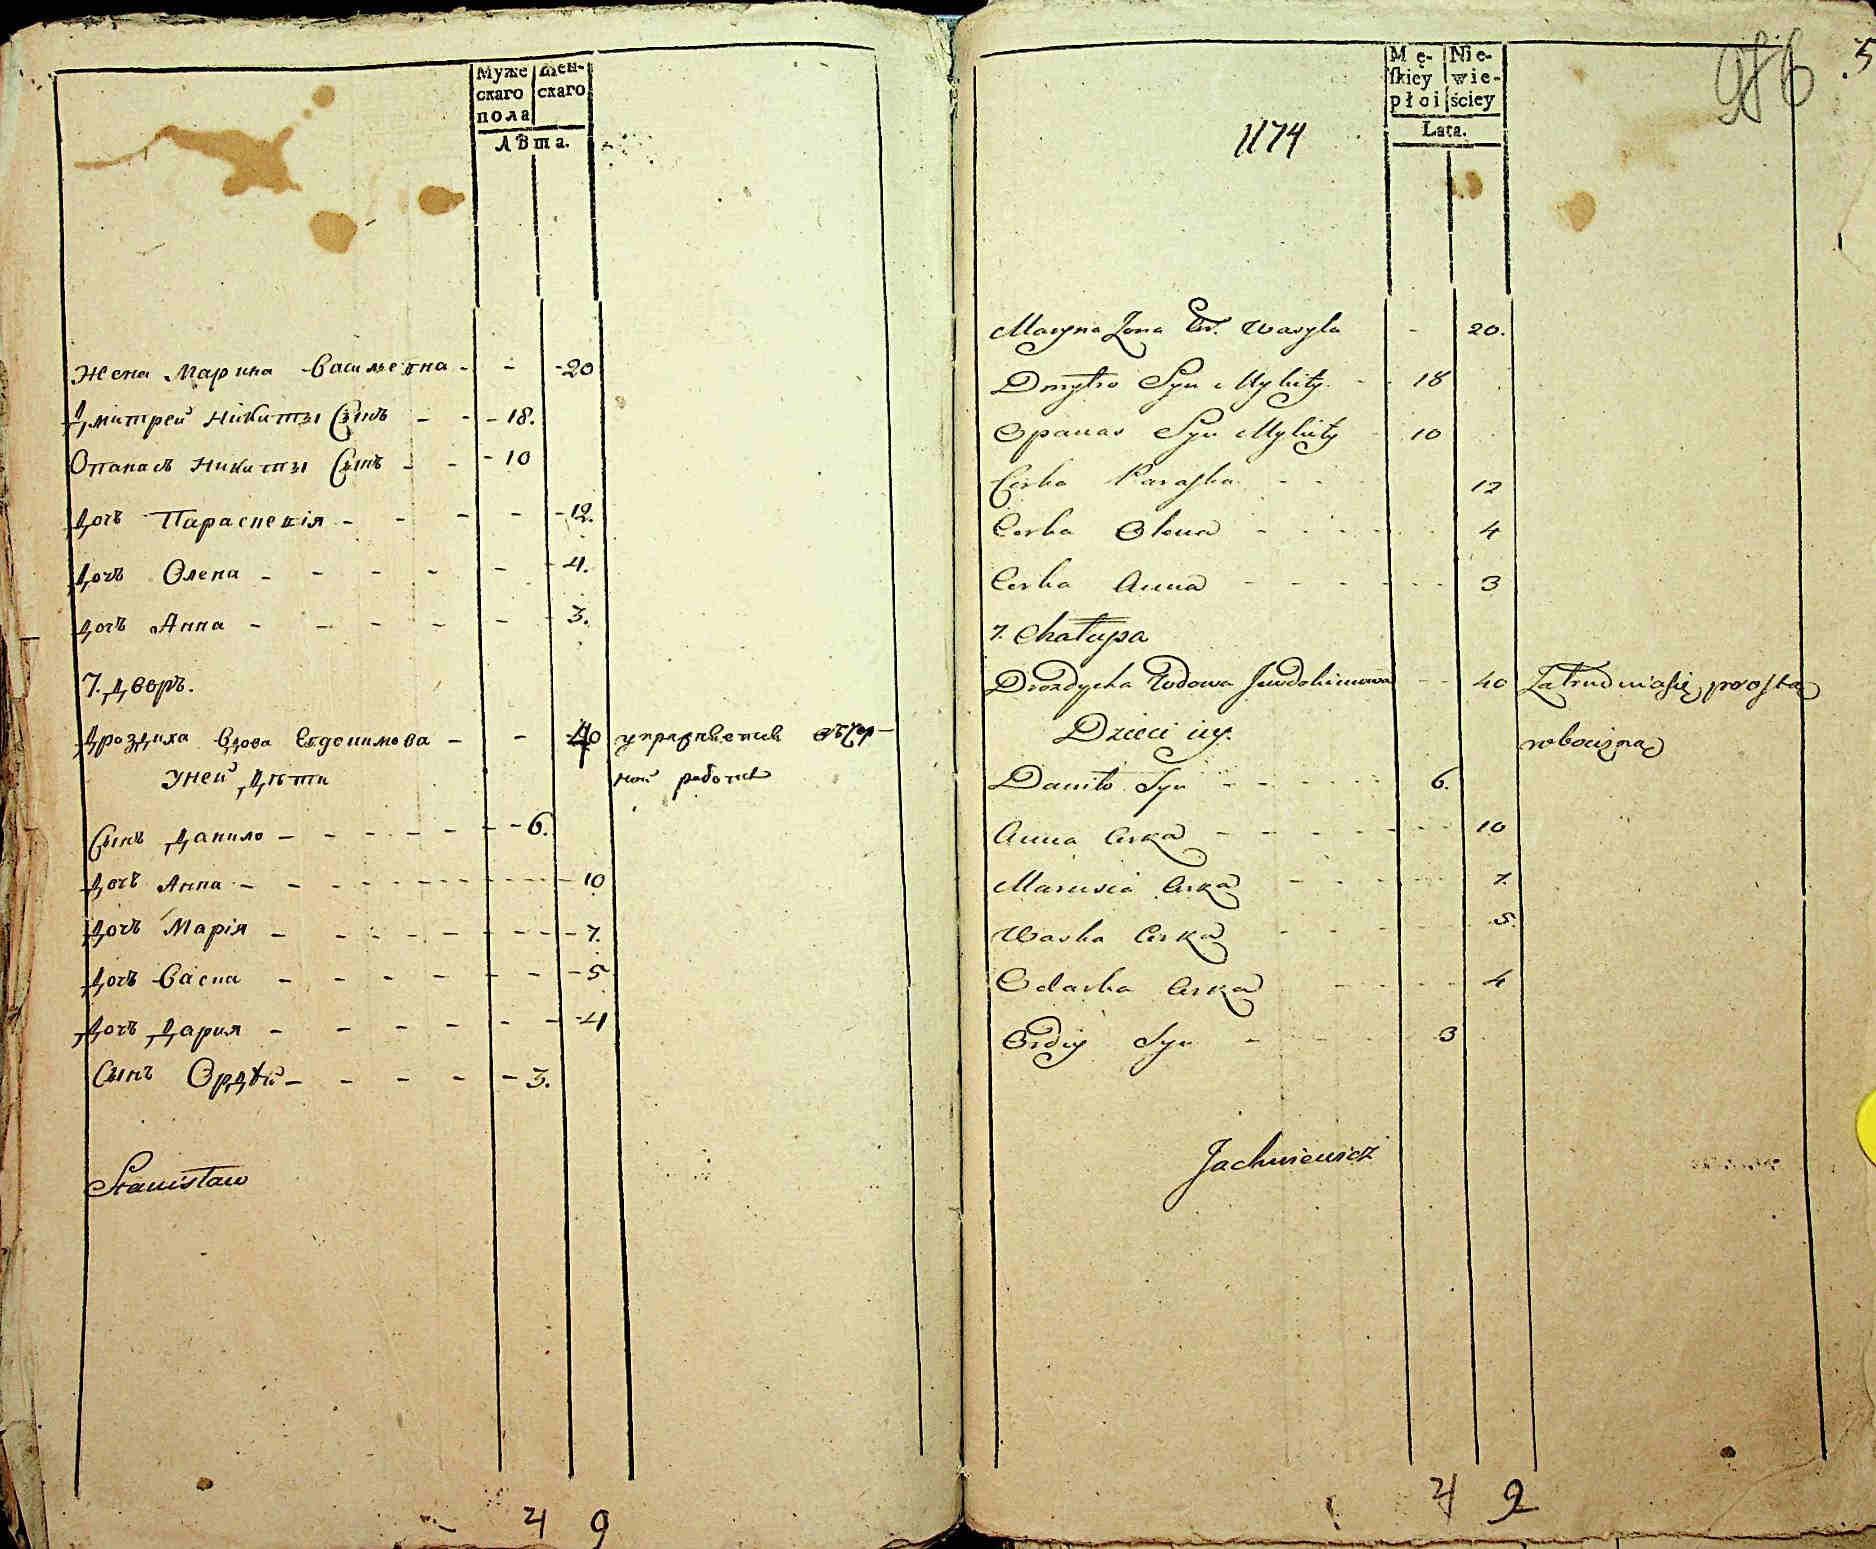 Муже
скаго
пола
Жен-
скаго
Лѣта.
Жена Марина Васильевна - - - 20
Дмитрей Никиты Сынъ - - - 18.
Опанасъ Никиты Сынъ - - - 10
Дочь Параскевія - - - - - 12.
Дочь Олена - - - - - - 4.
Дочь Анна - - - - - - 3.
7. Дворъ.
Дроздиха Вдова Евдокимова - - 40 упражняется въ чер-
ной работѣ
У ней Дѣти
Сынъ Данило - - - - - - 6.
Дочь Анна - - - - - - 10
Дочь Марія - - - - - - 7.
Дочь Васка - - - - - - 5
Дочь Дария - - - - - - 4
Сынъ Ордѣй - - - - - 3.
Stanisław
4 9
986
5
1174
Mę-
skiey
płci
Nie-
wie-
ściey
Lata.
Maryna Zona Wasyla - 20.
Dmytro Syn Mykity - 18
Opanas Syn Mykity - 10
Corka Paraska - - 12
Corka Olena - - - - 4
Corka Anna - - - - 3
7. Chałupa
Drozdycha Wdowa Jewdokimowa - - 40 Zatrudnia się prostą
robocizną
Dzieci iey.
Daniło Syn - - - - 6.
Anna Corka - - - - - 10
Marusia Corka - - - - 7.
Waska Corka - - - - 5.
Odarka Corka - - - - 4
Ordiy Syn - - - 3
Jachniewicz
4 9